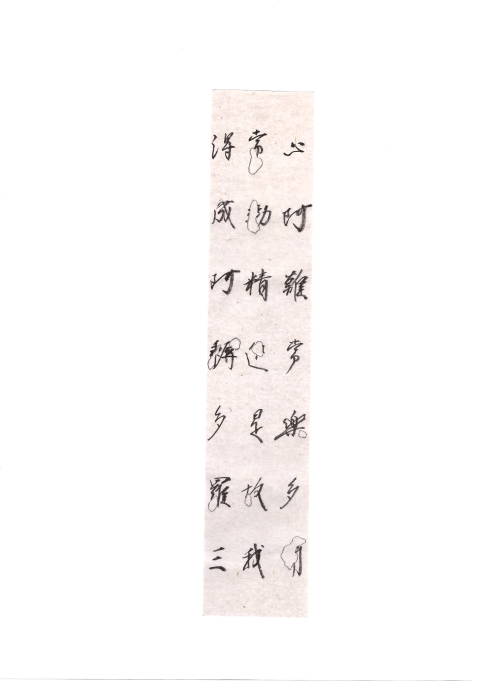 心阿難常樂多聞
常勤精進是故我
得成阿耨多羅三